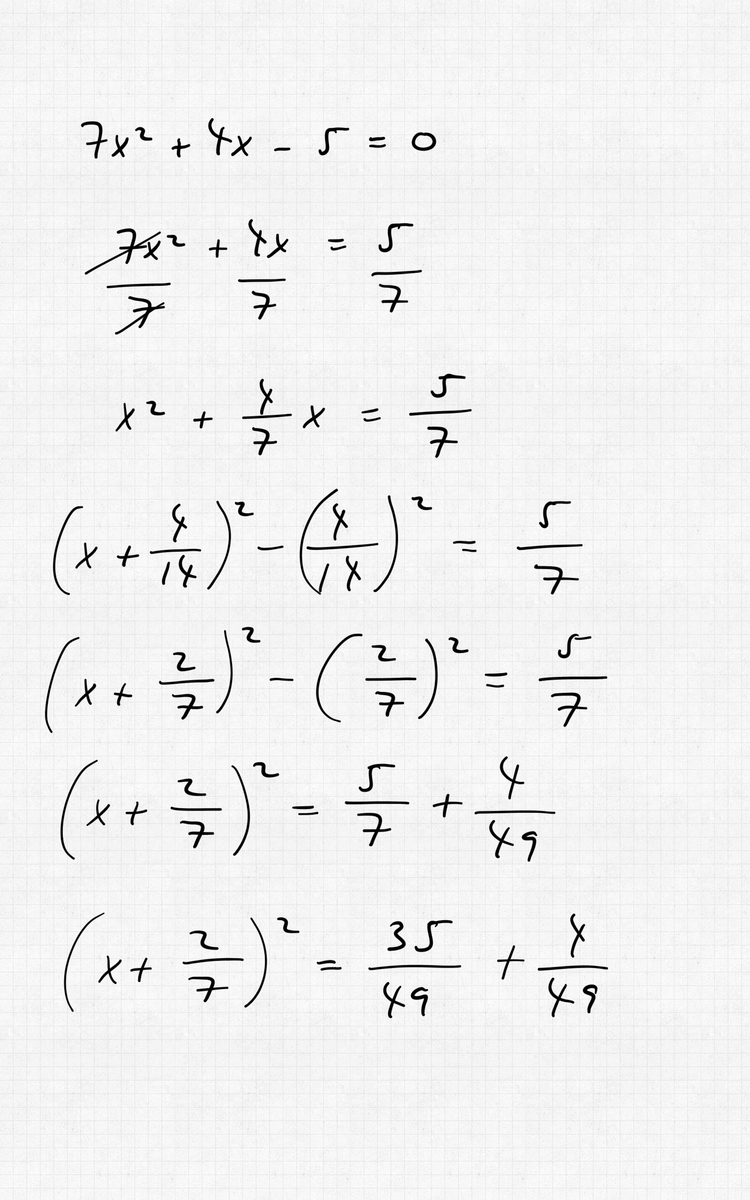 7x² + 4x - 5 = 0
7x²/7 + 4x/7 = 5/7
x² + 4/7 x = 5/7
(x + 4/14)² - (4/14)² = 5/7
(x + 2/7)² - (2/7)² = 5/7
(x + 2/7)² = 5/7 + 4/49
(x + 2/7)² = 35/49 + 4/49